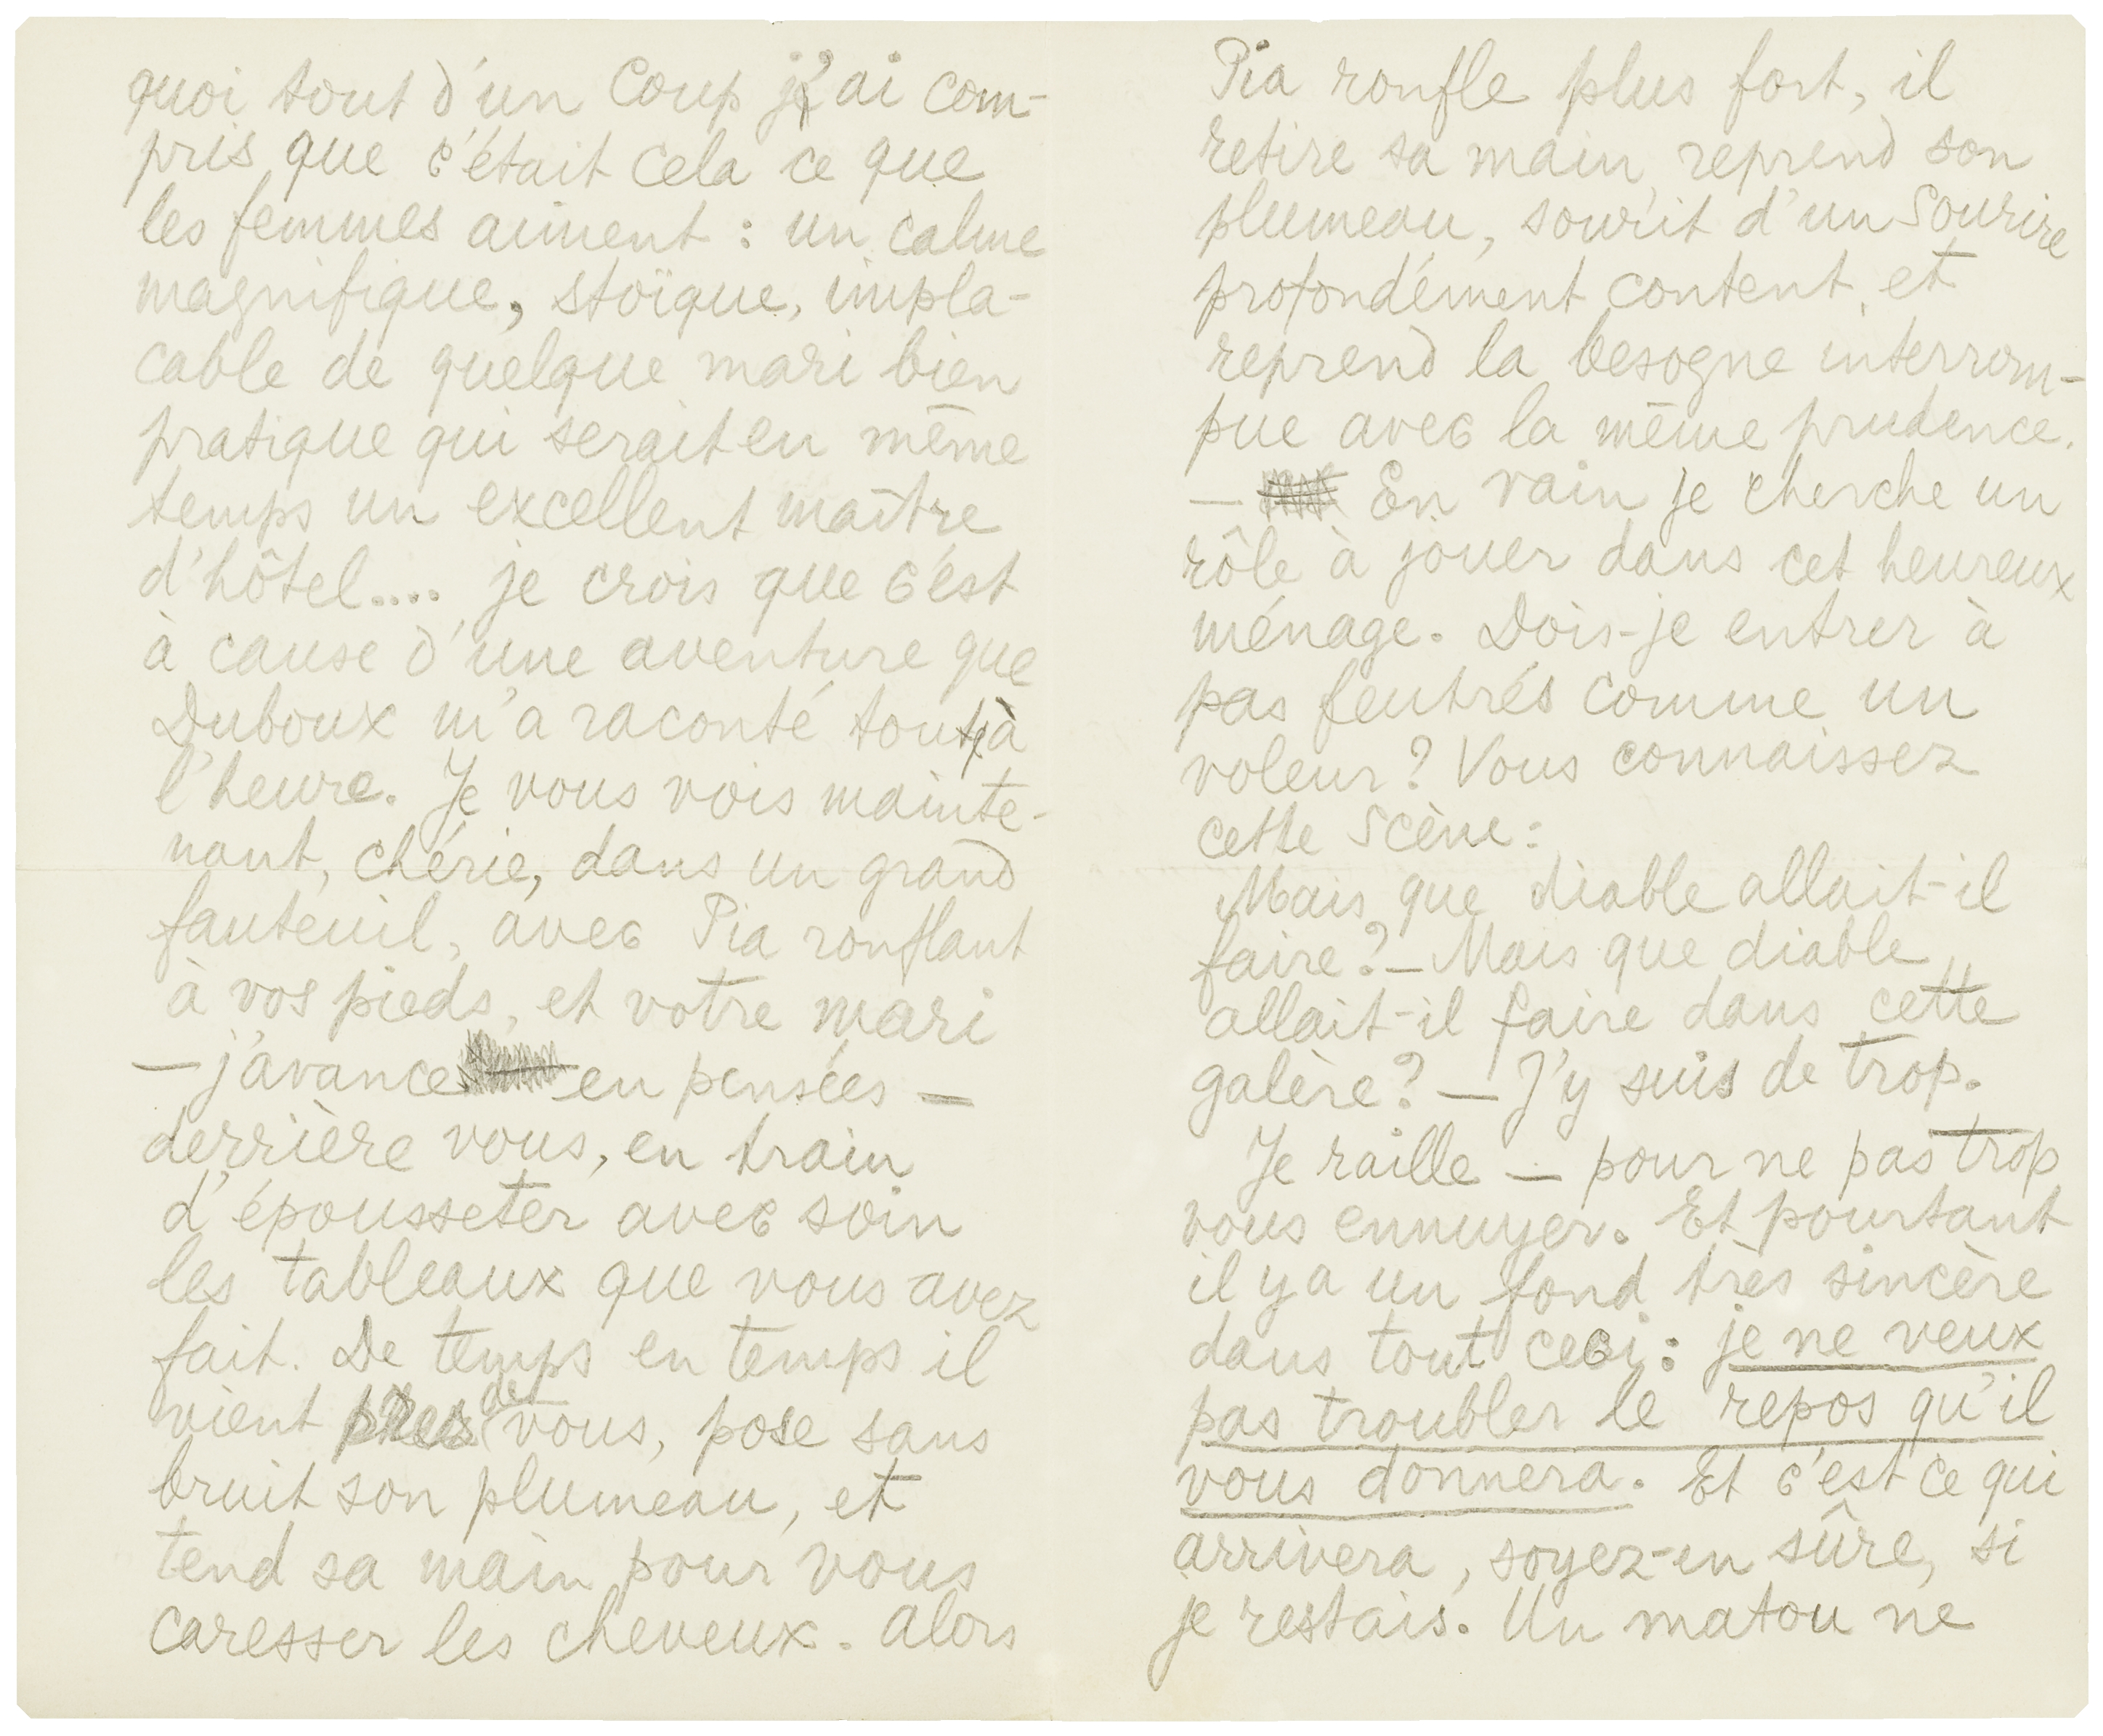 quoi tout d'un coup j'ai com-
pris que c'était cela ce que
les femmes aiment : un calme
magnifique, stoïque, impla-
cable de quelque mari bien
pratique qui serait en même
temps un excellent maître
d'hôtel.... je crois que c'est
à cause d'une aventure que
Duboux m'a raconté tout à
l'heure. Je vous vois mainte-
nant, chérie, dans un grand
fauteuil, avec Pia ronflant
à vos pieds, et votre mari
— j'avance en pensées —
derrière vous, en train
d'épousseter avec soin
les tableaux que vous avez
fait. De temps en temps il
vient près de vous, pose sans
bruit son plumeau, et
tend sa main pour vous
caresser les cheveux. Alors
Pia ronfle plus fort, il
retire sa main, reprend son
plumeau, sourit d'un sourire
profondément content, et
reprend la besogne interrom-
pue avec la même prudence.
— En vain je cherche un
rôle à jouer dans cet heureux
ménage. Dois-je entrer à
pas feutrés comme un
voleur ? Vous connaissez
cette scène :
Mais que diable allait-il
faire ? — Mais que diable
allait-il faire dans cette
galère ? — J'y suis de trop.
Je raille — pour ne pas trop
vous ennuyer. Et pourtant
il y a un fond très sincère
dans tout ceci : je ne veux
pas troubler le repos qu'il
vous donnera. Et c'est ce qui
arrivera, soyez-en sûre, si
je restais. Un matou ne